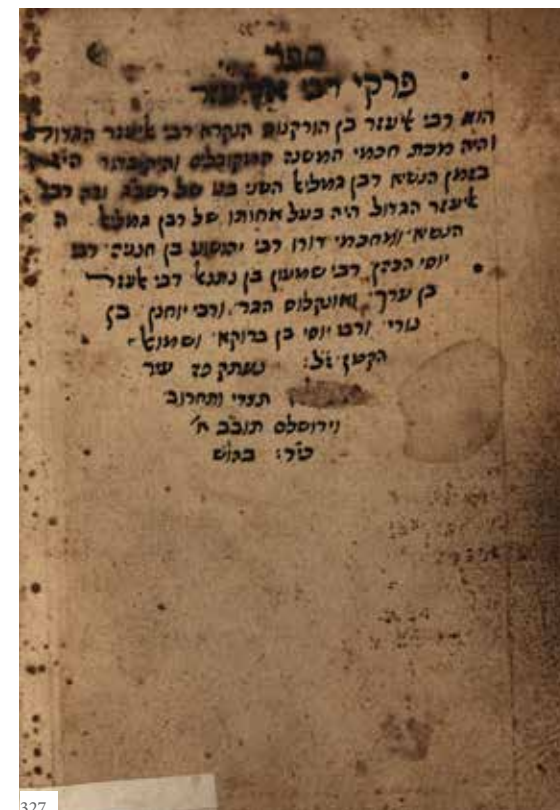 ספר
פרקי רבי אליעזר
הוא רבי אליעזר בן הורקנוס הנקרא רבי אליעזר הגדול
והיה מכת חכמי המשנה המקובלים
בזמן הנשיא רבן גמליאל השני בנו של רשב״ג
אליעזר הגדול היה בעל אחותו של רבן גמליאל ה
הנשיא ומחכמי דורו רבי יהושע בן חנניה רבי
יוסי הכהן רבי שמעון בן נתנאל רבי אלעזר
בן ערך ואונקלוס הגר ורבי יוחנן בן
נורי ורבי יוסי בן ברוקא ושמואל
הקטן נעתק פה עיר
תצרי ותחרוב
וירושלם תובב״א
327